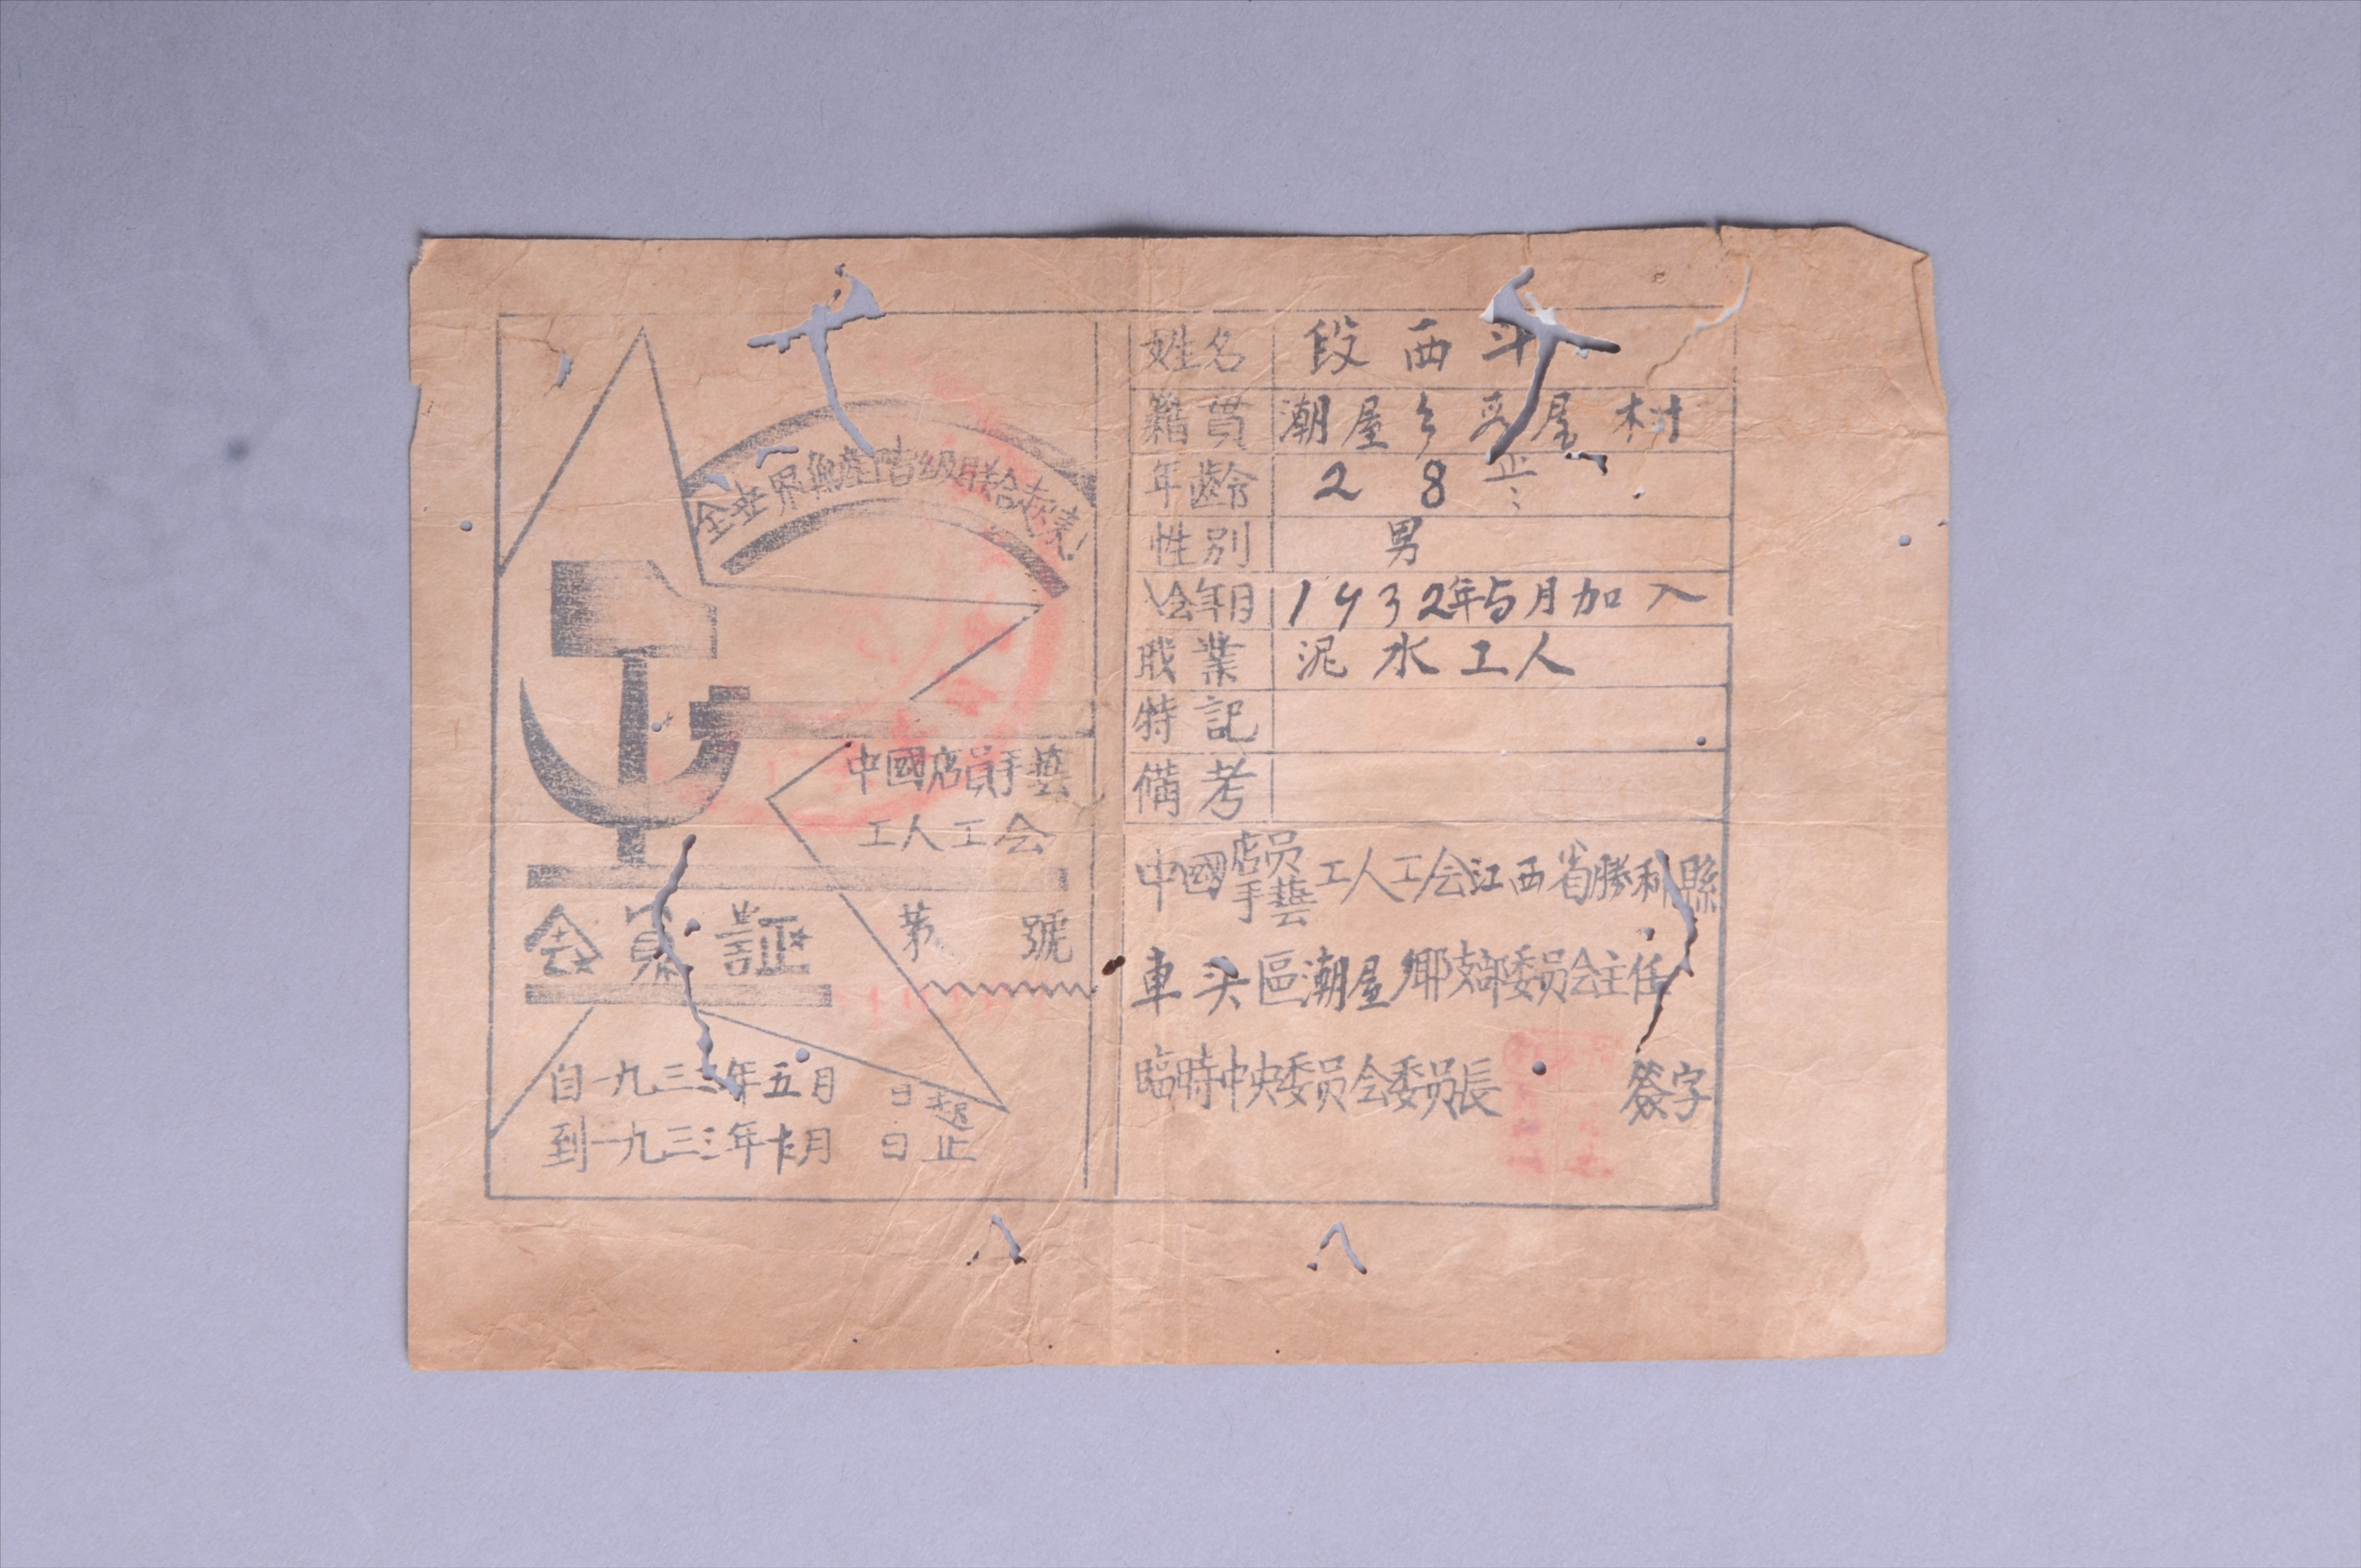 全世界無產階级联合起来!
中國店員手藝
工人工会
会員証
第 號
自一九三三年五月 日起
到一九三三年 月 日止
姓名 段西斗
籍貫 潮屋乡 屋村
年齡 28
性別 男
入会年月 1932年5月加入
职業 泥水工人
特記
備考
中國店员手藝工人工会江西省勝利縣
車头區潮屋鄉支部委员会主任
臨時中央委员会委员長 簽字